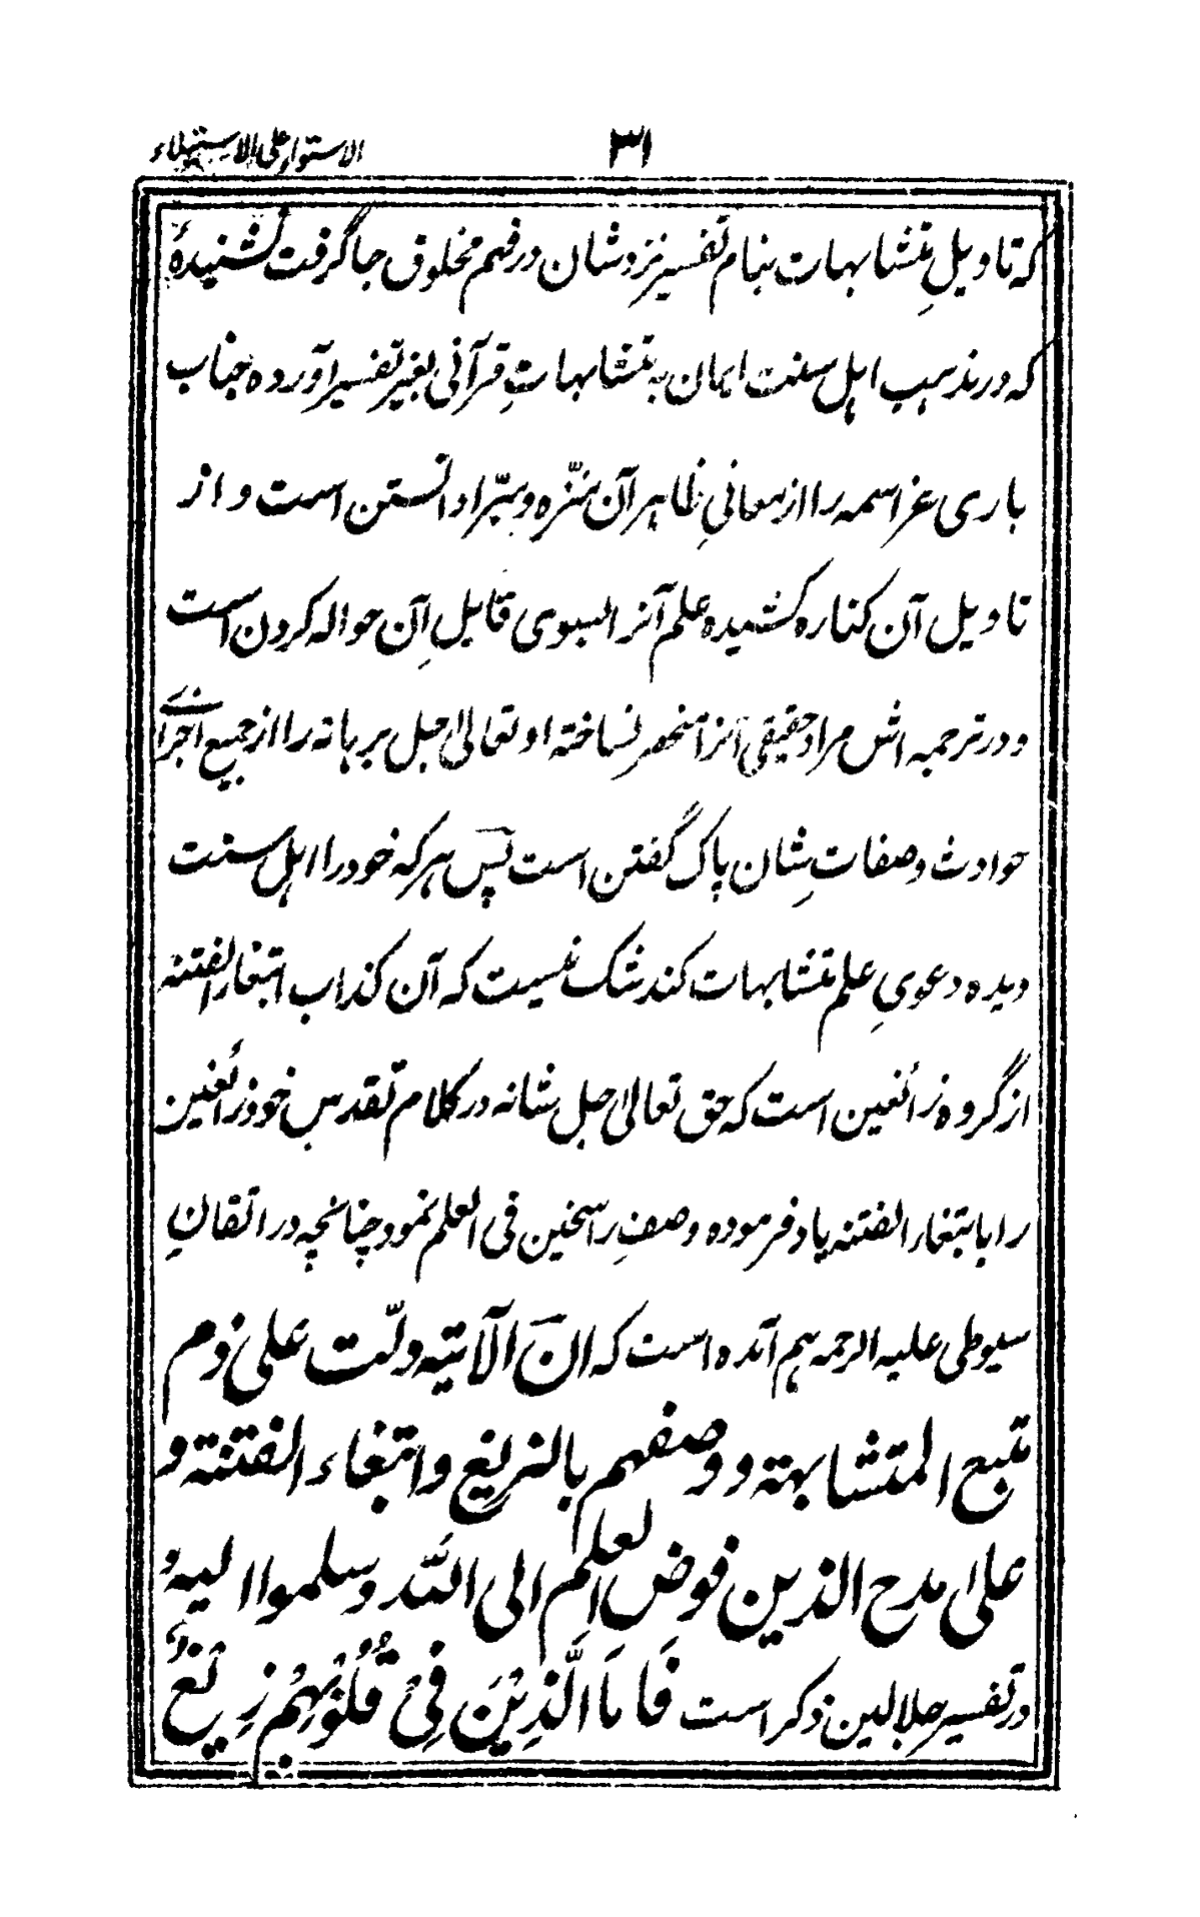 الاستواء علی الاستیلاء
۳۱
که تاویلِ متشابهات بنام تفسیر نزد شان در فهم مخلوق جا گرفت نشنیدهٔ
که در مذهب اهل سنت ایمان به متشابهاتِ قرآنی بغیر تفسیر آورده جناب
باری عز اسمه را از معانیِ ظاهر آن منزّه و مبرّا دانستن است و از
تاویل آن کناره کشیده علم آنرا بسوی قایلِ آن حواله کردن است
و در ترجمه اش مراد حقیقی آنرا منحصر نساخته او تعالیٰ جل برهانه را از جمیع اجزای
حوادث و صفاتِ شان پاک گفتن است پس هر که خود را اهل سنت
دیده دعویِ علم متشابهات کند شک نیست که آن کذاب ابتغاء الفتنه
از گروه زائغین است که حق تعالیٰ جل شانه در کلام تقدس خود زائغین
را بابتغاء الفتنه یاد فرموده وصفِ راسخین فی العلم نمود چنانچه در اتقانِ
سیوطی علیه الرحمه هم آمده است که ان الآیته دلّت علی ذم
متبع المتشابهة و وصفهم بالزیغ و ابتغاء الفتنة و
علیٰ مدح الذین فوض العلم الی الله وسلموا الیه و
در تفسیر جلالین ذکر است فَاَمَّا الَّذِیْنَ فِیْ قُلُوْبِهِمْ زَیْغٌ